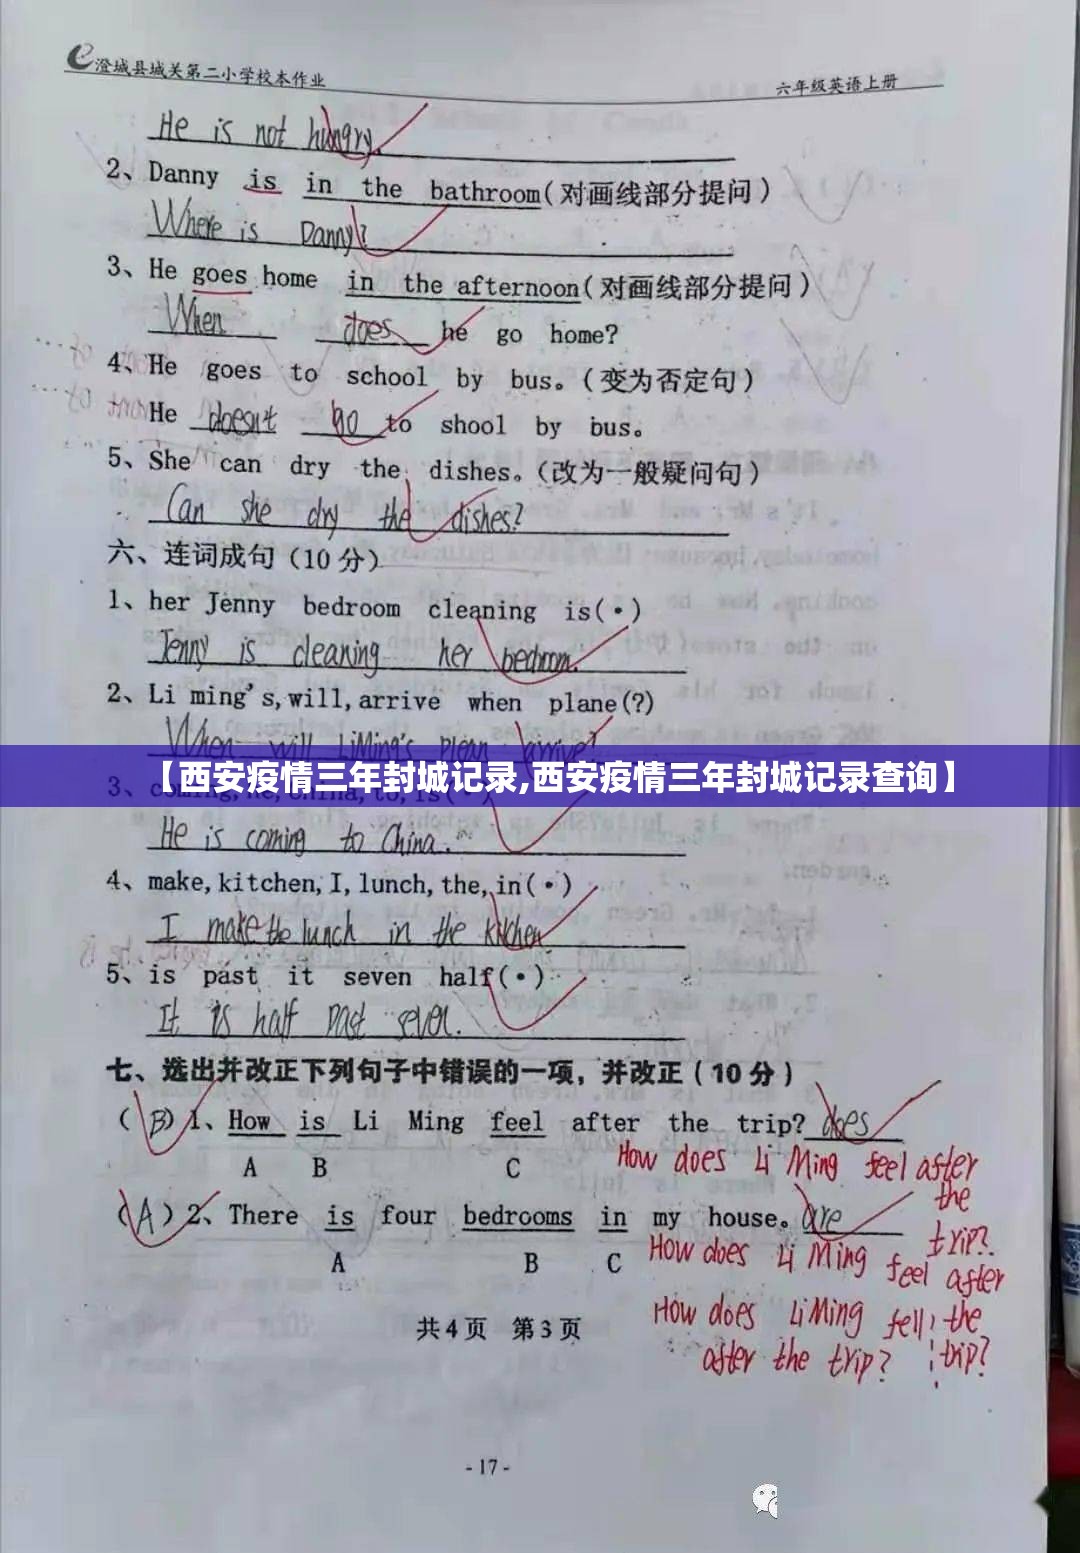 澄城县城关第二小学校本作业 六年级英语上册
He is not hungry.
2、Danny is in the bathroom(对画线部分提问)
Where is Danny?
3、He goes home in the afternoon(对画线部分提问)
When does he go home?
4、He goes to school by bus。(变为否定句)
He doesn't go to shool by bus。
5、She can dry the dishes。(改为一般疑问句)
Can she dry the dishes?
六、连词成句(10分)
1、her Jenny bedroom cleaning is(·)
Jenny is cleaning her bedroom.
2、Li ming's,will,arrive when plane(?)
When will LiMing's plean arrive?
【西安疫情三年封城记录,西安疫情三年封城记录查询】
3、coming,he,China,to,is(·)
He is coming to China.
4、make,kitchen,I,lunch,the,in(·)
I make the lunch in the kitchen
5、is past it seven half(·)
It is half past seven.
七、选出并改正下列句子中错误的一项，并改正(10分)
(B)1、How is Li Ming feel after the trip? does
A B C
How does Li Ming feel after the trip?
(A)2、There is four bedrooms in my house。are
A B C
How does Li Ming feel after the trip?
How does LiMing fell
after the trip?
共4页 第3页
-17-